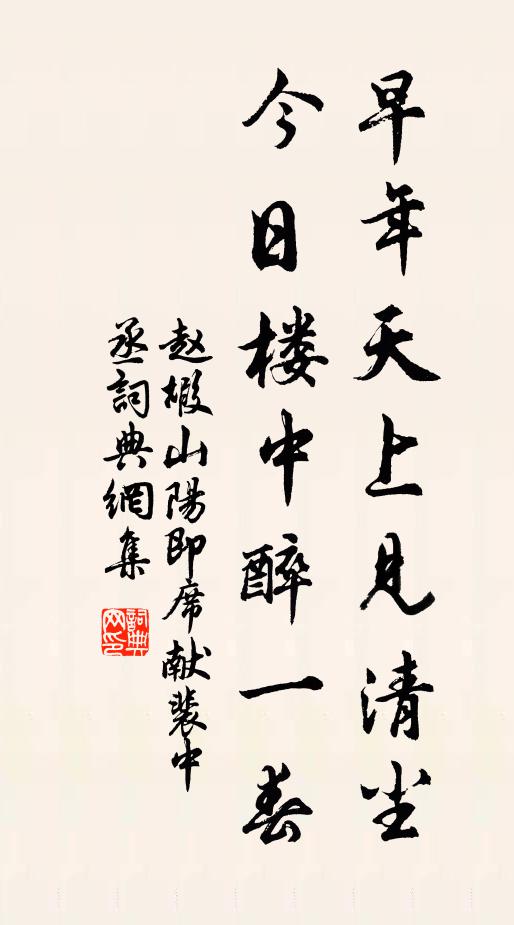 早年天上见清尘
今日楼中醉一春
赵椵山陽即席献裴中
丞詞典網集
詞典
网印